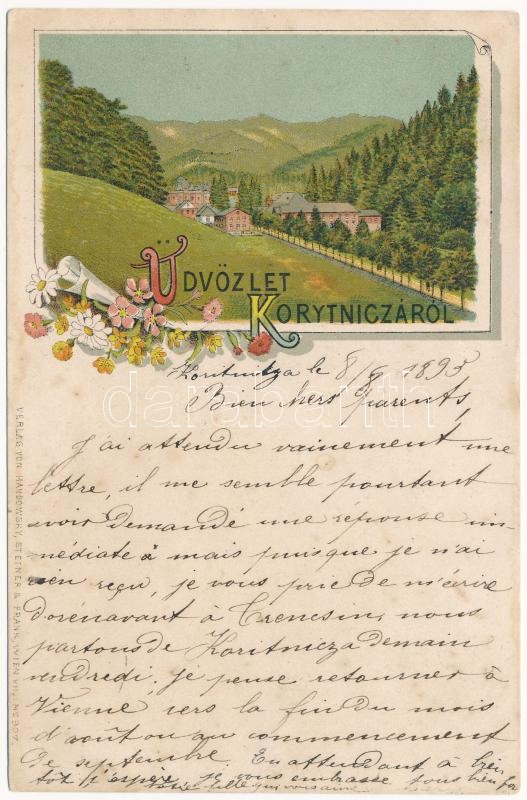 ÜDVÖZLET
KORYTNICZÁRÓL
Koritnitza le 8/8 1895
Bien chers parents,
J'ai attendu vainement une
lettre, il me semble pourtant
avoir demandé une réponse im-
médiate à mais puisque je n'ai
rien reçu, je vous prie de m'écrire
dorénavant à Trencsin, nous
partons de Koritnicza demain
vendredi, je pense retourner à
Vienne vers la fin du mois
d'août ou au commencement
de septembre. En attendant à bien-
tôt j'espère je vous embrasse tous bien fort
Votre fille qui vous aime
VERLAG VON HANDOWSKY, STEINER & FRANK, WIEN VII,
darabanth